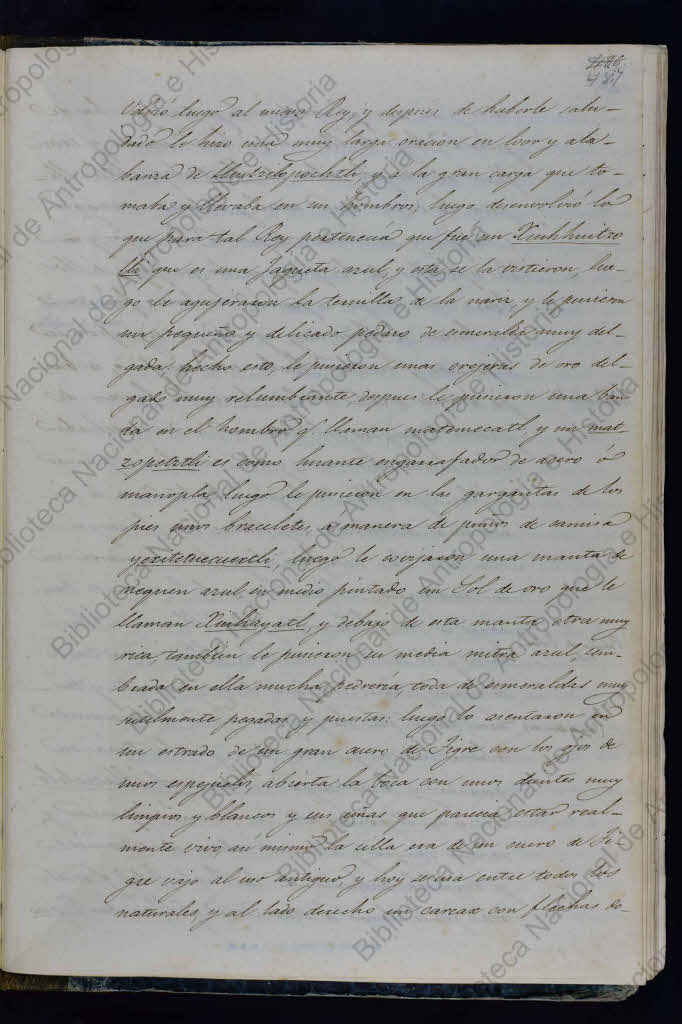 437
Volvió luego al nuevo Rey, y despues de haberle salu-
dado le hizo una muy larga oracion en loor y ala-
banza de Huitzilopochtli, y á la gran carga que to-
maba y llevaba en sus hombros, luego desenvolvió lo
que para tal Rey pertenecia que fué un Xiuhhuitzo
lli que es una Jaqueta azul, y esta se la vistieron, lue-
go le agujeraron la ternilla de la nariz y le pusieron
un pequeño y delicado pedazo de esmeralda muy del-
gada, hecho esto, le pusieron unas orejeras de oro del-
gado muy relumbrante, despues le pusieron una ban
da en el hombro q! llaman matemecatl, y un mat-
zopetztli es como guante engarrafador de acero ó
manopla, luego le pusieron en las gargantas de los
pies unos braceletes, á manera de puños de camisa
yexitetuecuextli, luego le covijaron una manta de
nequen azul, en medio pintado un Sol de oro que le
llaman Xiuhayatl, y debajo de esta manta otra muy
rica, tambien le pusieron su media mitra azul, sem-
brada en ella mucha pedreria toda de esmeraldas muy
sutilmente pegadas, y puestas: luego lo asentaron en
un estrado de un gran cuero de Tigre con los ojos de
unos espejuelos, abierta la boca con unos dientes muy
limpios y blancos y sus uñas que parecia estar real-
mente vivo, asi mismo la silla era de un cuero de Ti-
gre vajo al uso antiguo, y hoy se usa entre todos los
naturales, y al lado derecho un carcax con flechas do-
Biblioteca Nacional de Antropologia e Historia